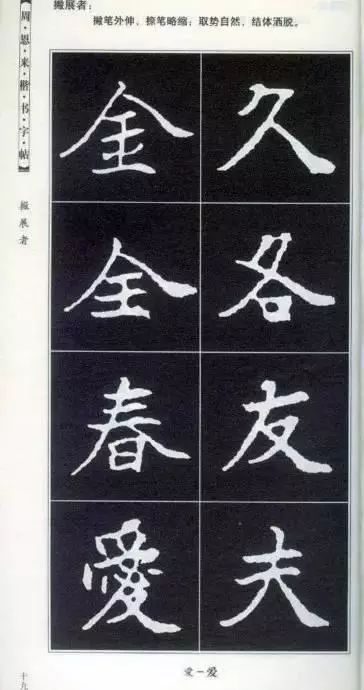 撇展者：
撇笔外伸，捺笔略缩；取势自然，结体洒脱。
【周·恩·来·楷·书·字·帖】
撇展者
久各友夫
金全春愛
爱－爱
十九